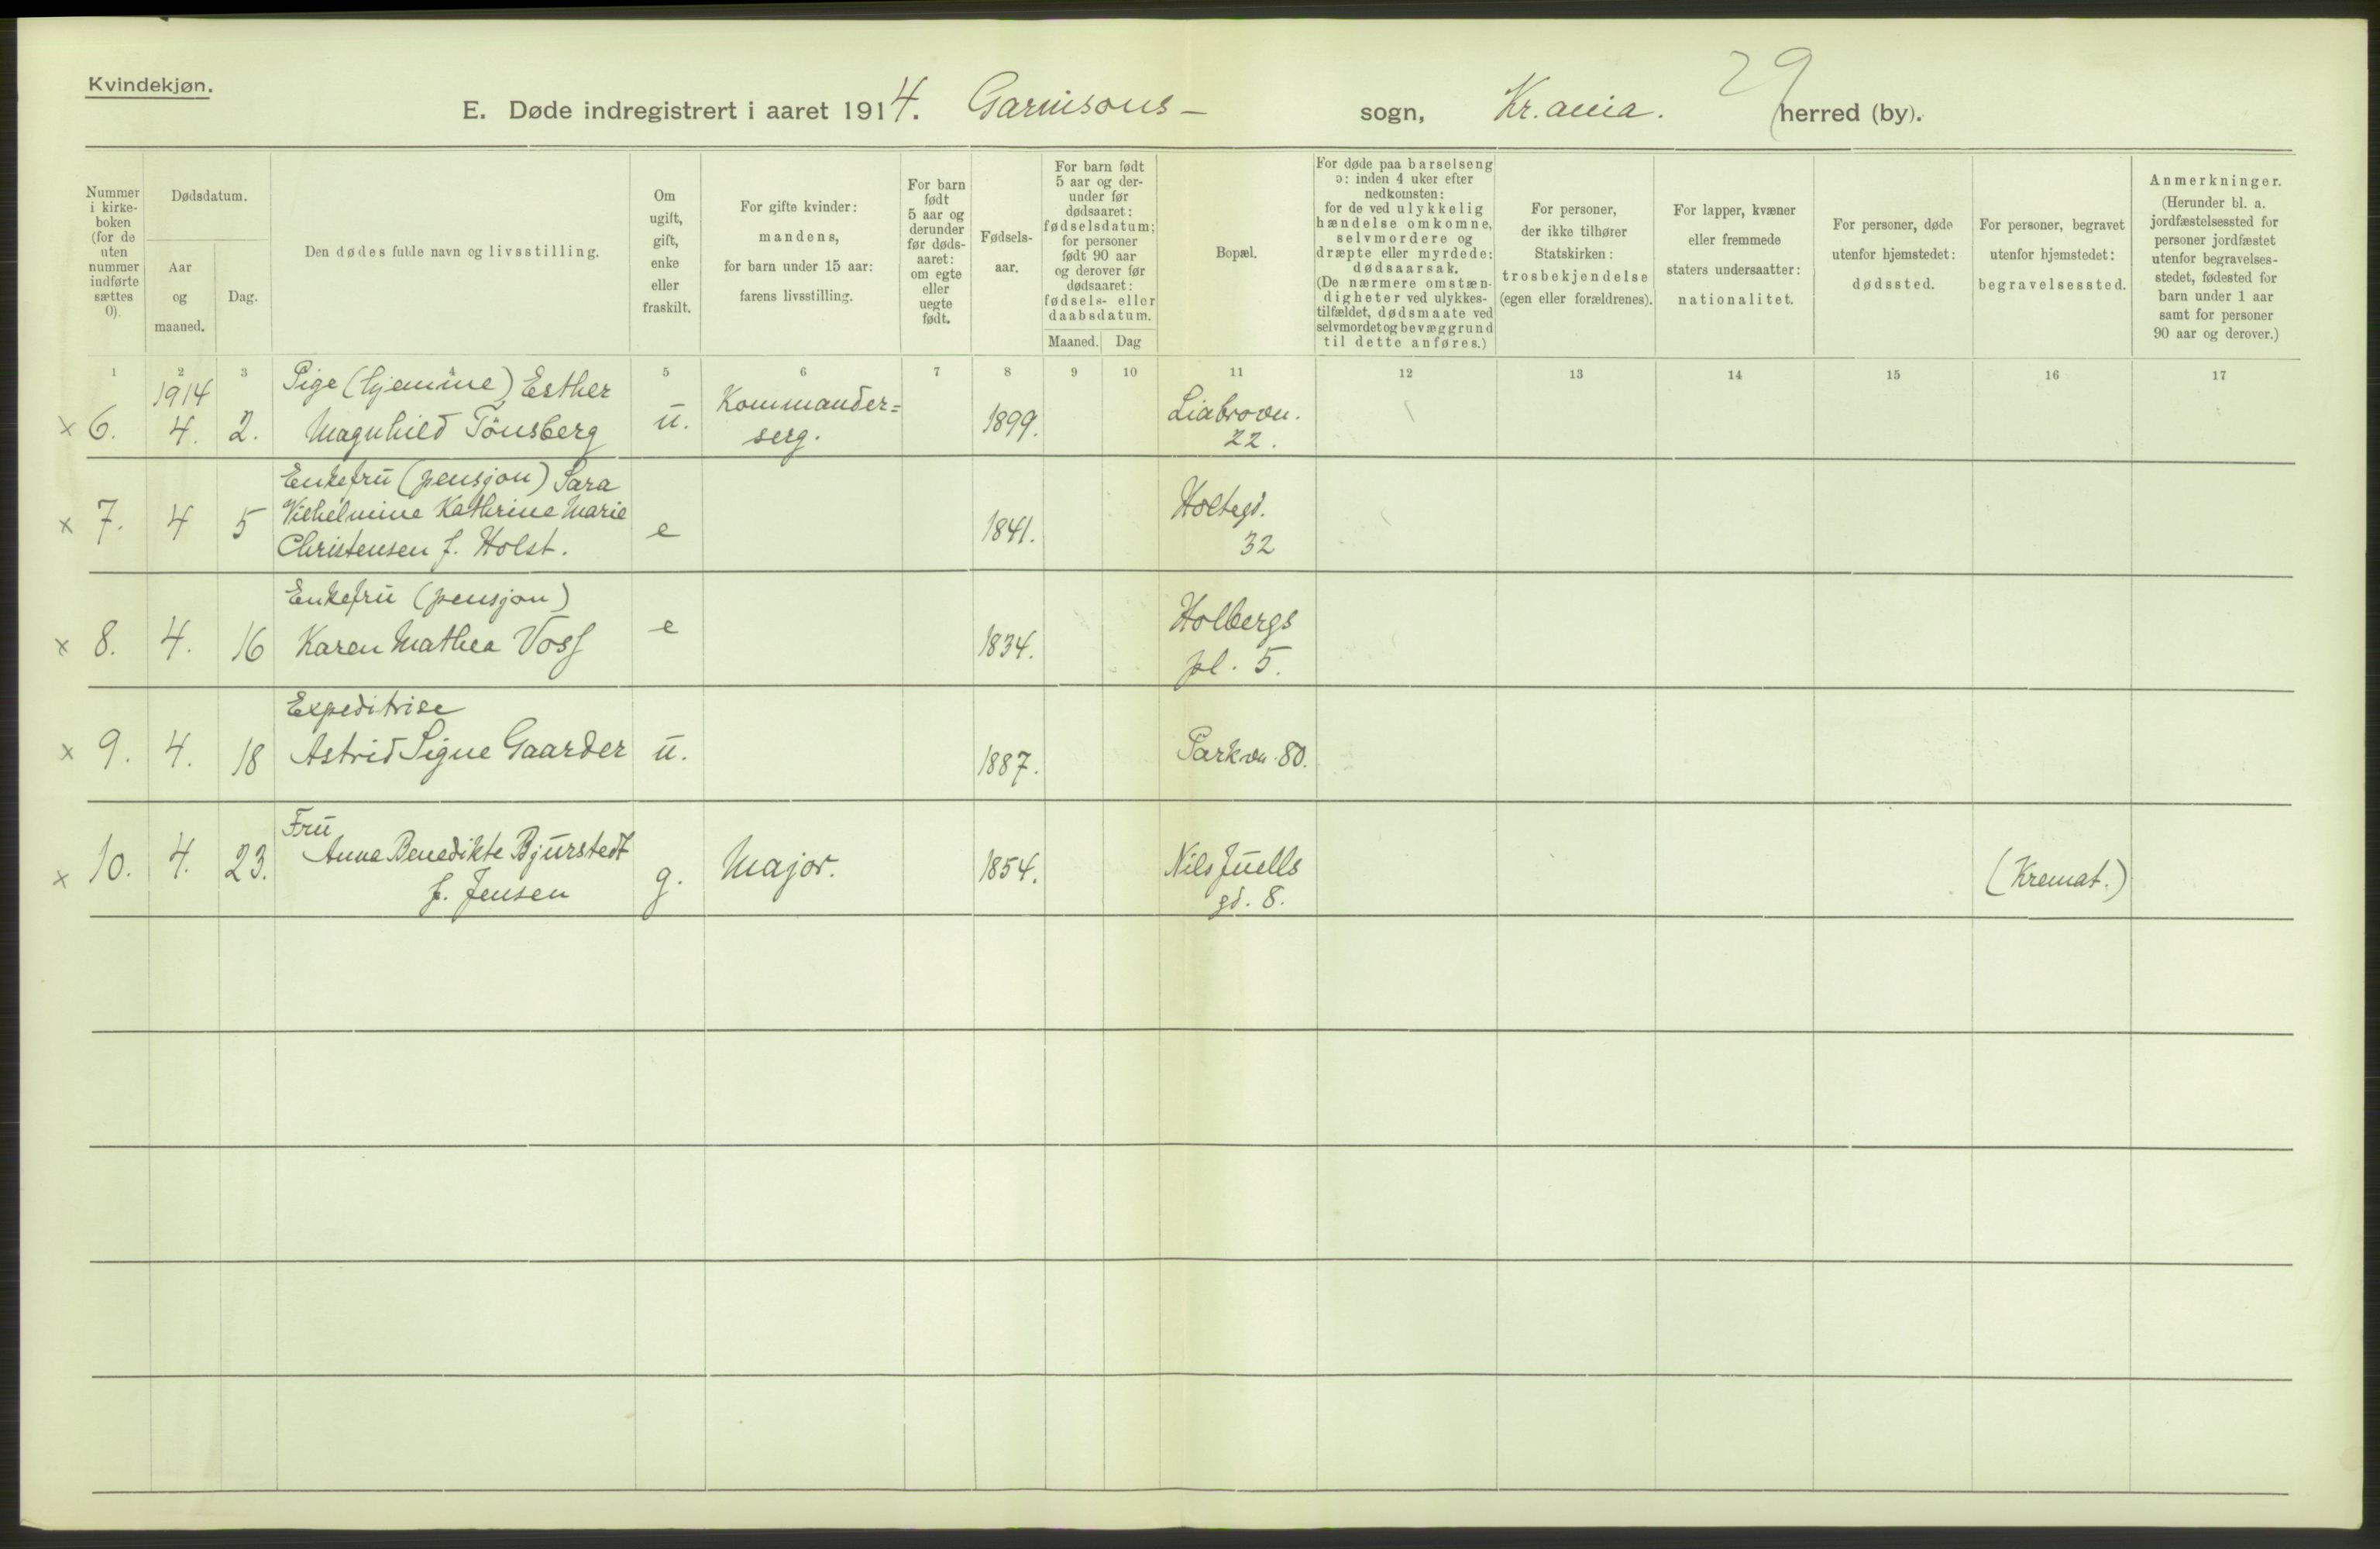 Kvindekjøn.
29
E. Døde indregistrert i aaret 1914. Garnisons- sogn, Kr.ania. herred (by).
Nummer
i kirke-
boken
(for de
uten
nummer
indførte
sættes
0).
Dødsdatum.
Aar
og
maaned.
Dag.
Den dødes fulde navn og livsstilling.
Om
ugift,
gift,
enke
eller
fraskilt.
For gifte kvinder:
mandens,
for barn under 15 aar:
farens livsstilling.
For barn
født
5 aar og
derunder
før døds-
aaret:
om egte
eller
uegte
født.
Fødsels-
aar.
For barn født
5 aar og der-
under før
dødsaaret:
fødselsdatum;
for personer
født 90 aar
og derover før
dødsaaret:
fødsels- eller
daabsdatum.
Maaned. Dag
Bopæl.
For døde paa barselseng
ɔ: inden 4 uker efter
nedkomsten:
for de ved ulykkelig
hændelse omkomne,
selvmordere og
dræpte eller myrdede:
dødsaarsak.
(De nærmere omstæn-
digheter ved ulykkes-
tilfældet, dødsmaate ved
selvmordet og bevæggrund
til dette anføres.)
For personer,
der ikke tilhører
Statskirken:
trosbekjendelse
(egen eller forældrenes).
For lapper, kvæner
eller fremmede
staters undersaatter:
nationalitet.
For personer, døde
utenfor hjemstedet:
dødssted.
For personer, begravet
utenfor hjemstedet:
begravelsessted.
Anmerkninger.
(Herunder bl. a.
jordfæstelsessted for
personer jordfæstet
utenfor begravelses-
stedet, fødested for
barn under 1 aar
samt for personer
90 aar og derover.)
1 2 3 4 5 6 7 8 9 10 11 12 13 14 15 16 17
1914 Pige (hjemme) Esther Kommander= Liabrovn.
x 6. 4. 2. Magnhild Tönsberg u. serg. 1899. 22.
Enkefru (pensjon) Sara
x 7. 4 5 Vilhelmine Kathrine Marie e 1841. Holtegd.
Christensen f. Holst. 32
Enkefru (pensjon) Holbergs
x 8. 4. 16 Karen Mathea Voss e 1834. pl. 5.
Expeditrise
x 9. 4. 18 Astrid Signe Gaarder u. 1887. Parkvn. 80.
Fru
x 10. 4. 23. Anna Benedikte Bjurstedt g. Major. 1854. Nils Juells (Kremat.)
f. Jensen gd. 8.